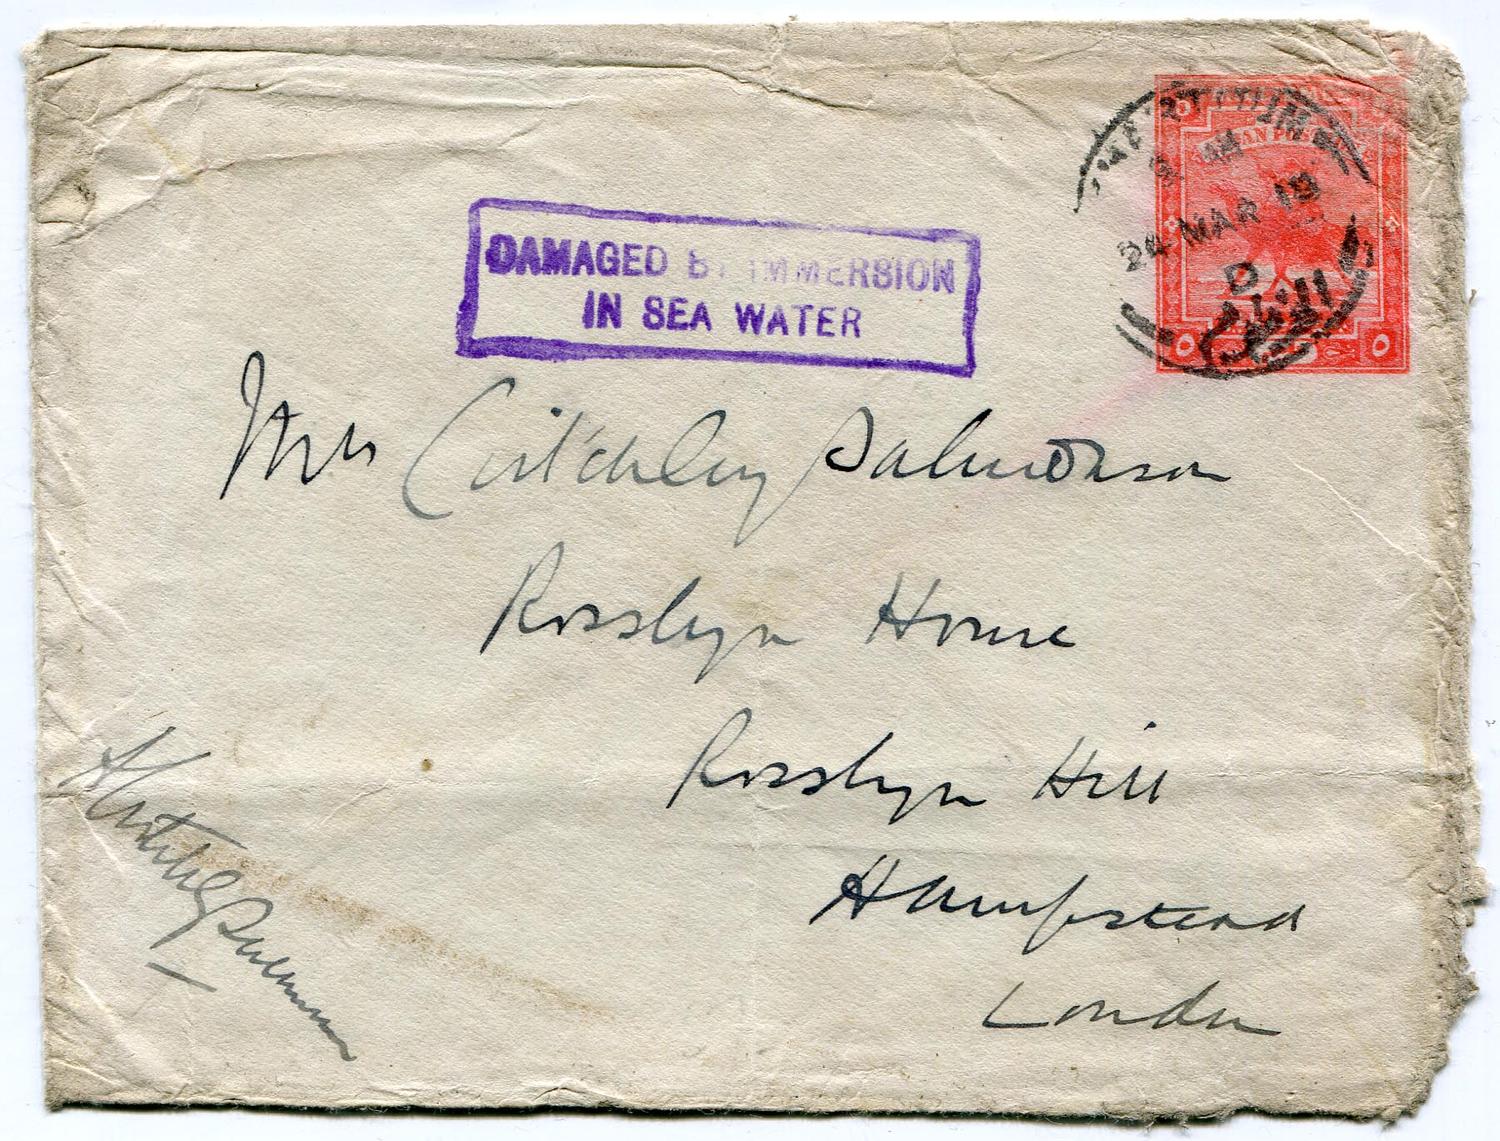 KHARTOUM
24 MAR 19
D
DAMAGED BY IMMERSION
IN SEA WATER
Mrs Critchley Salmonson
Rosslyn House
Rosslyn Hill
Hampstead
London
٥ ٥